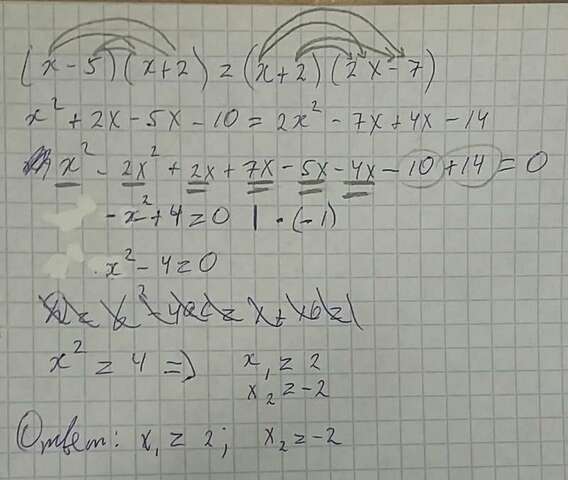 (x - 5)(x + 2) = (x + 2)(2x - 7)
x² + 2x - 5x - 10 = 2x² - 7x + 4x - 14
x² - 2x² + 2x + 7x - 5x - 4x - 10 + 14 = 0
-x² + 4 = 0 | · (-1)
x² - 4 = 0
x² = 4 => x₁ = 2
x₂ = -2
Ответ: x₁ = 2; x₂ = -2